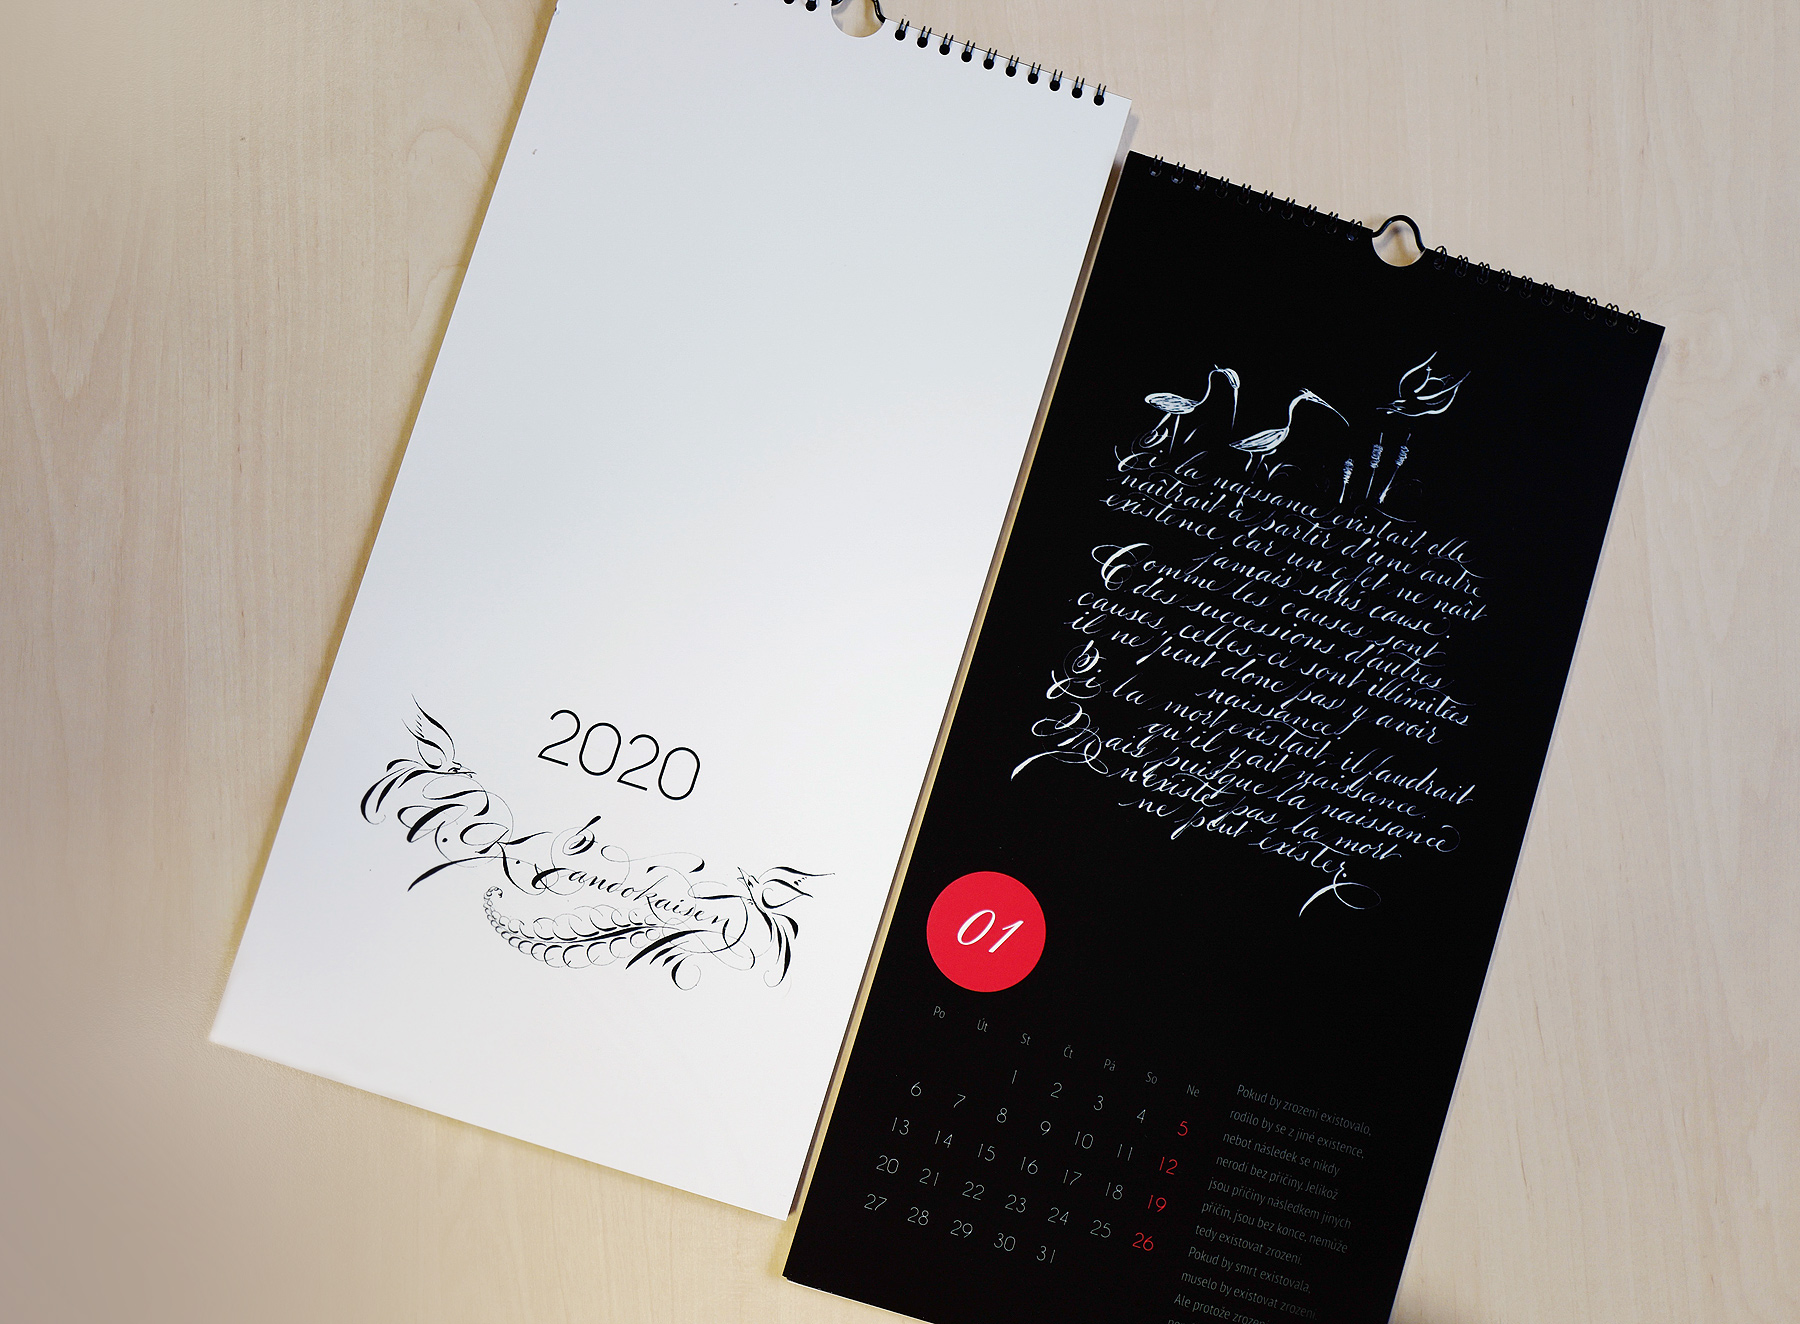 2020
A. K. Sandokaisen
Si la naissance existait, elle
naîtrait à partir d'une autre
existence car un effet ne naît
jamais sans cause.
Comme les causes sont
des successions d'autres
causes, celles-ci sont illimitées
il ne peut donc pas y avoir
naissance.
Si la mort existait, il faudrait
qu'il y ait naissance.
Mais puisque la naissance
n'existe pas la mort
ne peut exister.
01
Po Út St Čt Pá So Ne
1 2 3 4 5
6 7 8 9 10 11 12
13 14 15 16 17 18 19
20 21 22 23 24 25 26
27 28 29 30 31
Pokud by zrození existovalo,
rodilo by se z jiné existence,
neboť následek se nikdy
nerodí bez příčiny. Jelikož
jsou příčiny následkem jiných
příčin, jsou bez konce, nemůže
tedy existovat zrození.
Pokud by smrt existovala,
muselo by existovat zrození.
Ale protože zrození